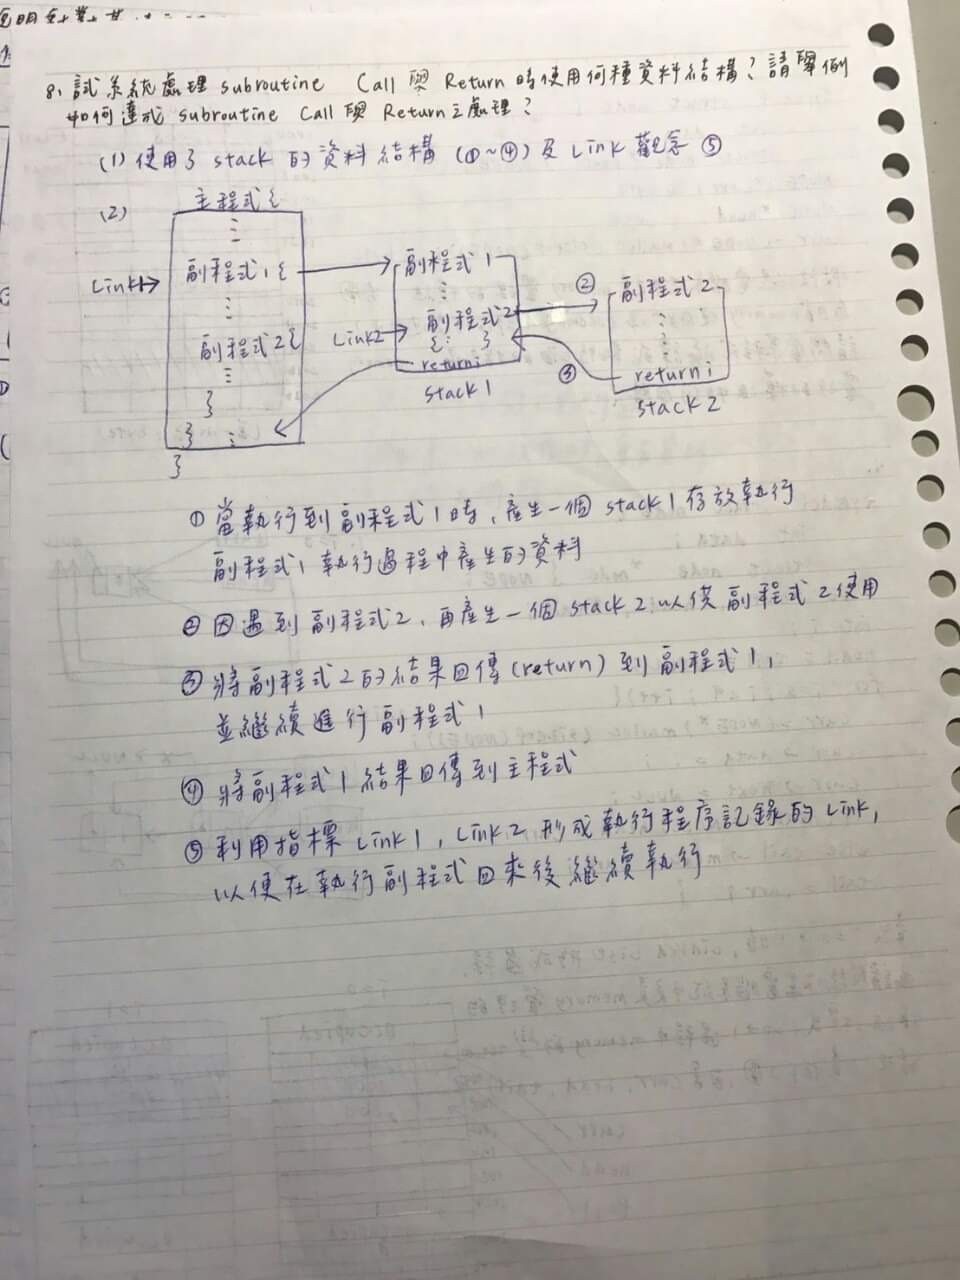 8、試系統處理 subroutine Call 與 Return 時使用何種資料結構？請舉例
如何達成 subroutine Call 與 Return 之處理？
(1) 使用了 stack 的資料結構 (①~④) 及 Link 觀念 ⑤
(2)
主程式{
Link1→
副程式1{
副程式2{
}
}
}
副程式1
Link2→
副程式2
{ }
return;
stack 1
②
③
副程式2
return;
stack 2
① 當執行到副程式1時、產生一個 stack 1 存放執行
副程式1執行過程中產生的資料
② 因遇到副程式2、再產生一個 stack 2 以供副程式2使用
③ 將副程式2的結果回傳(return)到副程式1,
並繼續進行副程式1
④ 將副程式1結果回傳到主程式
⑤ 利用指標 Link1, Link2 形成執行程序記錄的 Link,
以便在執行副程式回來後繼續執行